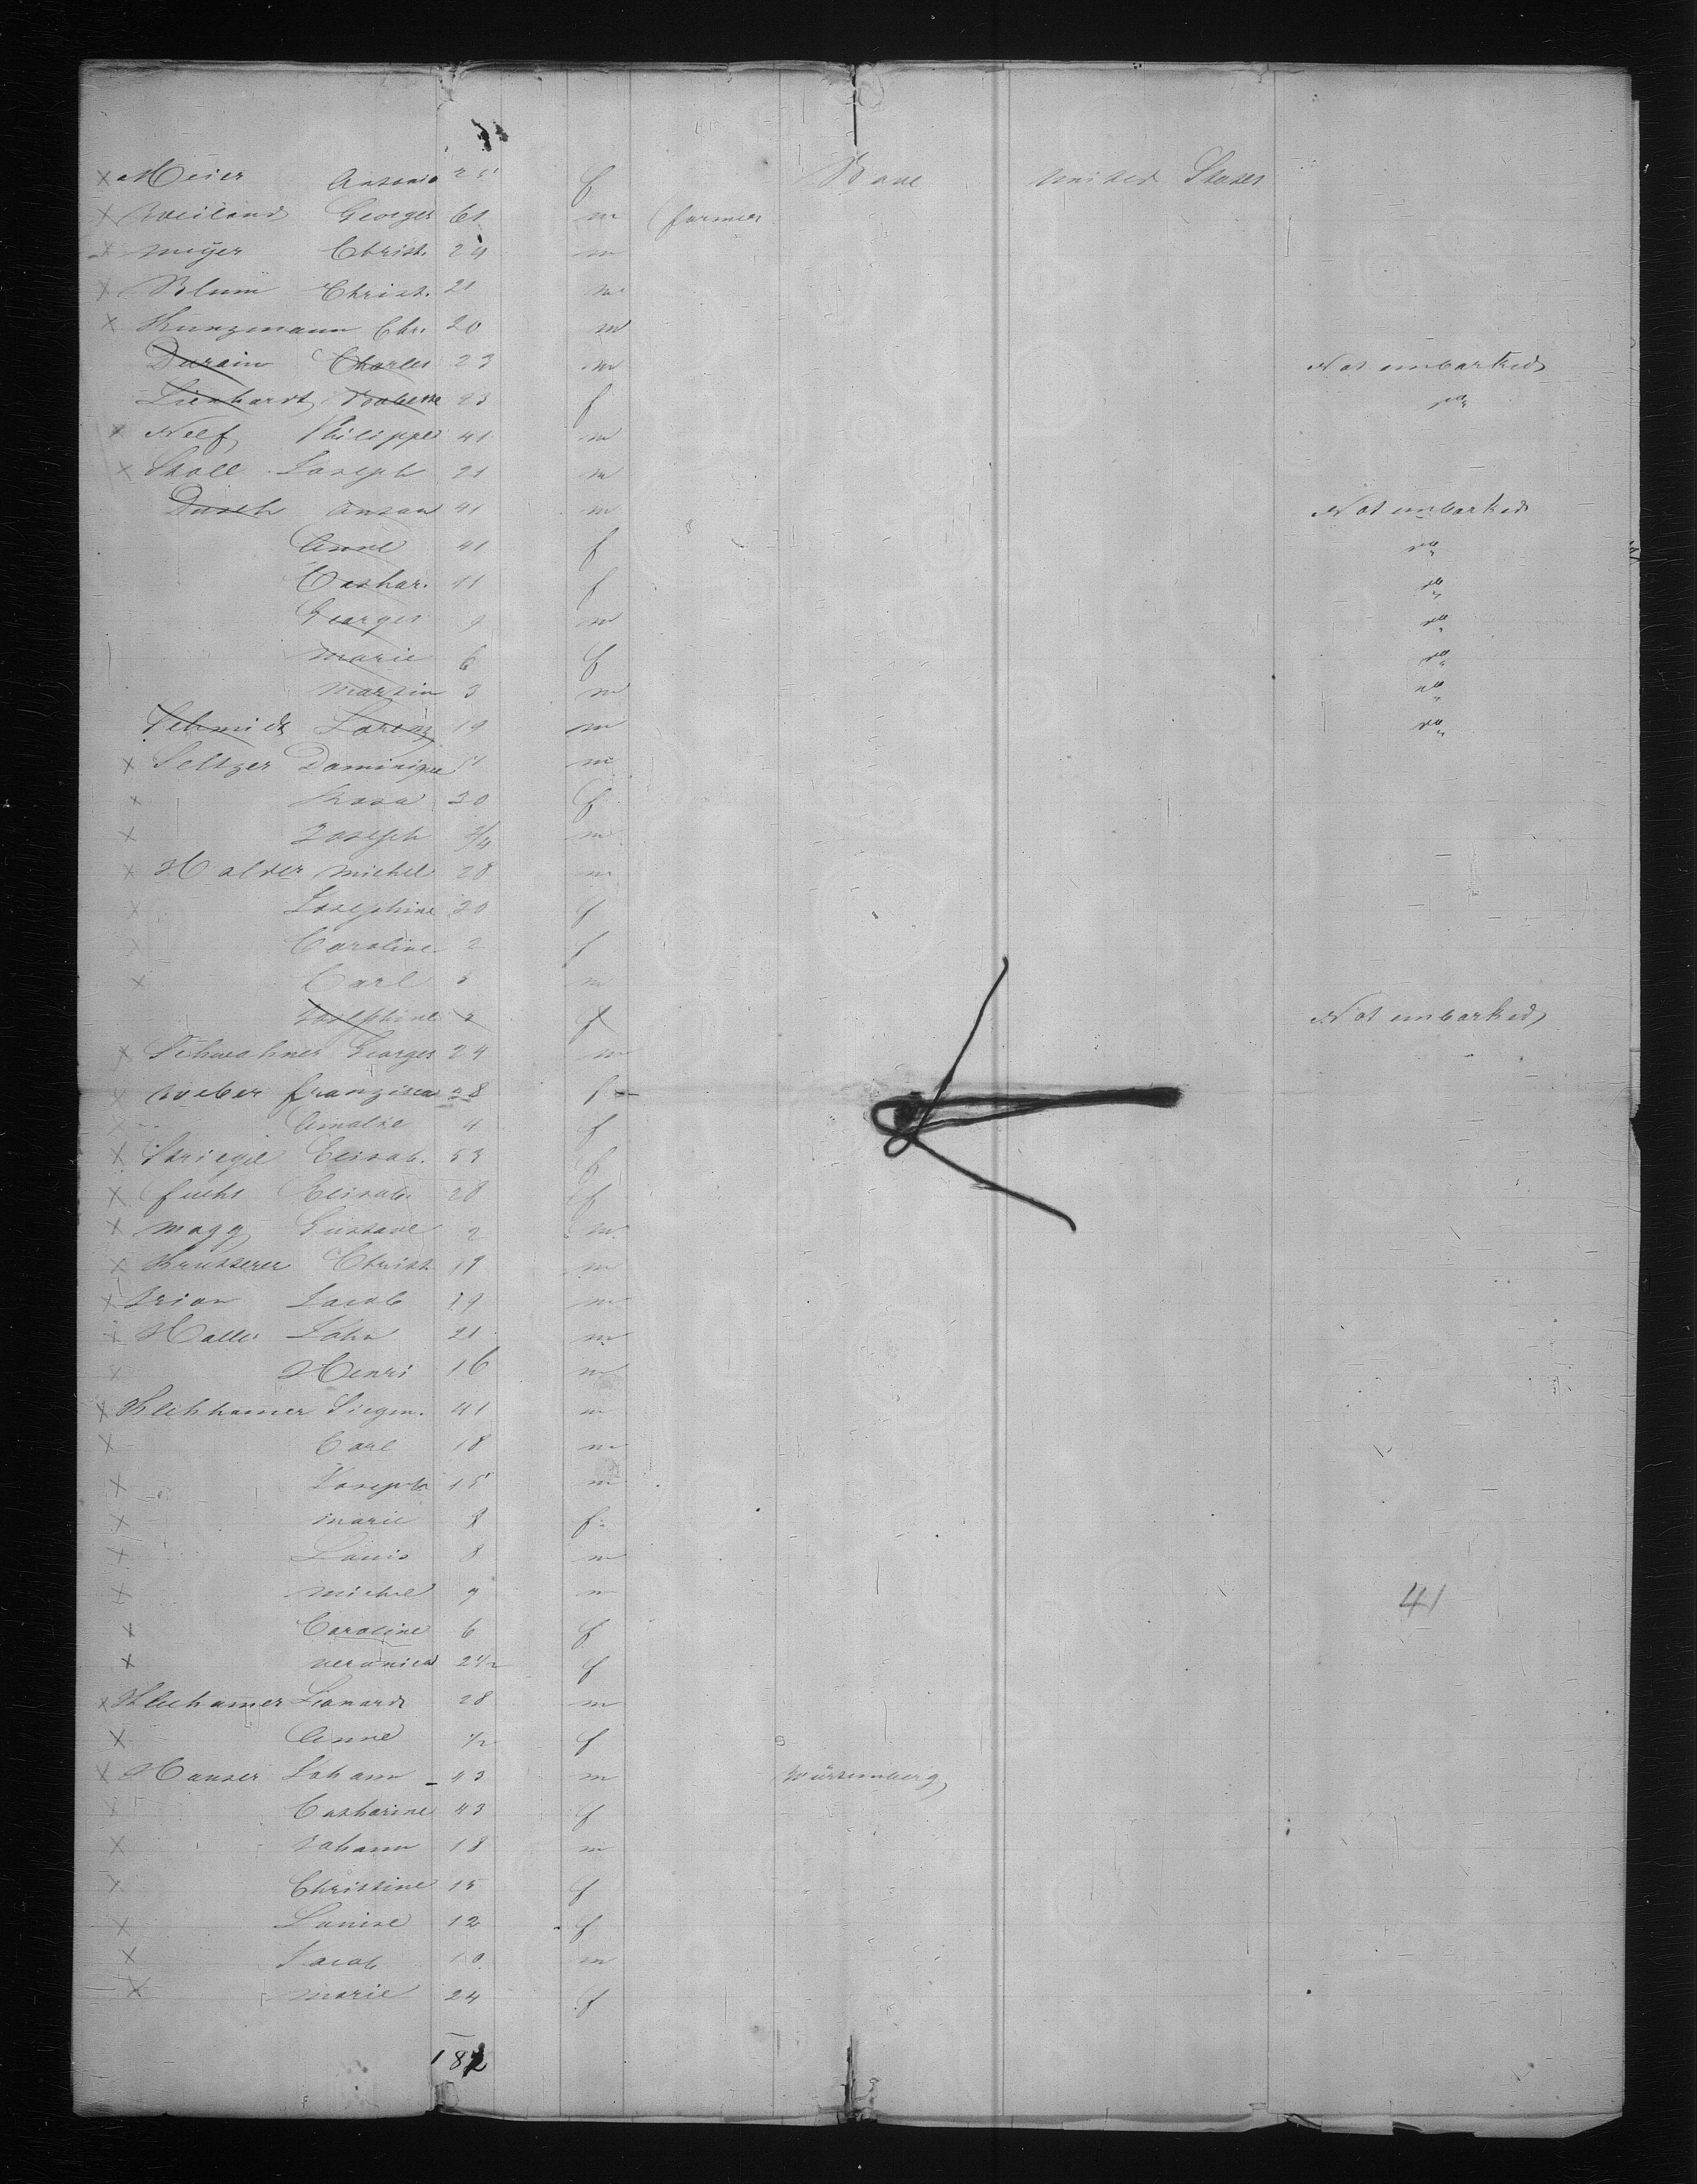 x Meier Antonia 25 f Bade United States
x Weiland Georges 61 m farmer
x Meyer Christ. 24 m
x Blum Christ. 21 m
x Kunzmann Chr. 20 m
Durain Charles 23 m Not embarked
Lienhardt Babette 23 f do
x Nelf Philippe 41 m
x Stoll Joseph 21 m
Dusch Anton 41 m Not embarked
Anne 41 f do
Cathar. 11 f do
Georges 9 m do
Marie 6 f do
Martin 3 m do
Schmidt Lorenz 19 m do
x Seltzer Dominique m
x Rosa 30 f
x Joseph 3/4 m
x Halder Michel 28 m
x Josephine 30 f
x Caroline 2 f
x Carl m
Josephine f Not embarked
x Schwahner Georges 24 m
x Weber Franzisca 28 f
x Amalie 4 f
x Striegel Elisab. 53 f
x Fuchs Elisab. 28 f
x Magg Gustave 2 m
x Krutterer Christ 19 m
x Trion Jacob 19 m
x Haller John 21 m
x Henri 16 m
x Klehhamer Siegm. 41 m
x Carl 18 m
x Joseph 15 m
x Marie f
x Louis 8 m
x Michel 9 m 41
x Caroline 6 f
x Veronica 2 1/2 f
x Klehamer Leonard 28 m
x Anne 1/2 f
x Hauser Johann 43 m Würtemberg
x Catharine 43 f
x Johann 18 m
x Christine 15 f
x Louise 12 f
x Jacob 10 m
x Marie 24 f
182